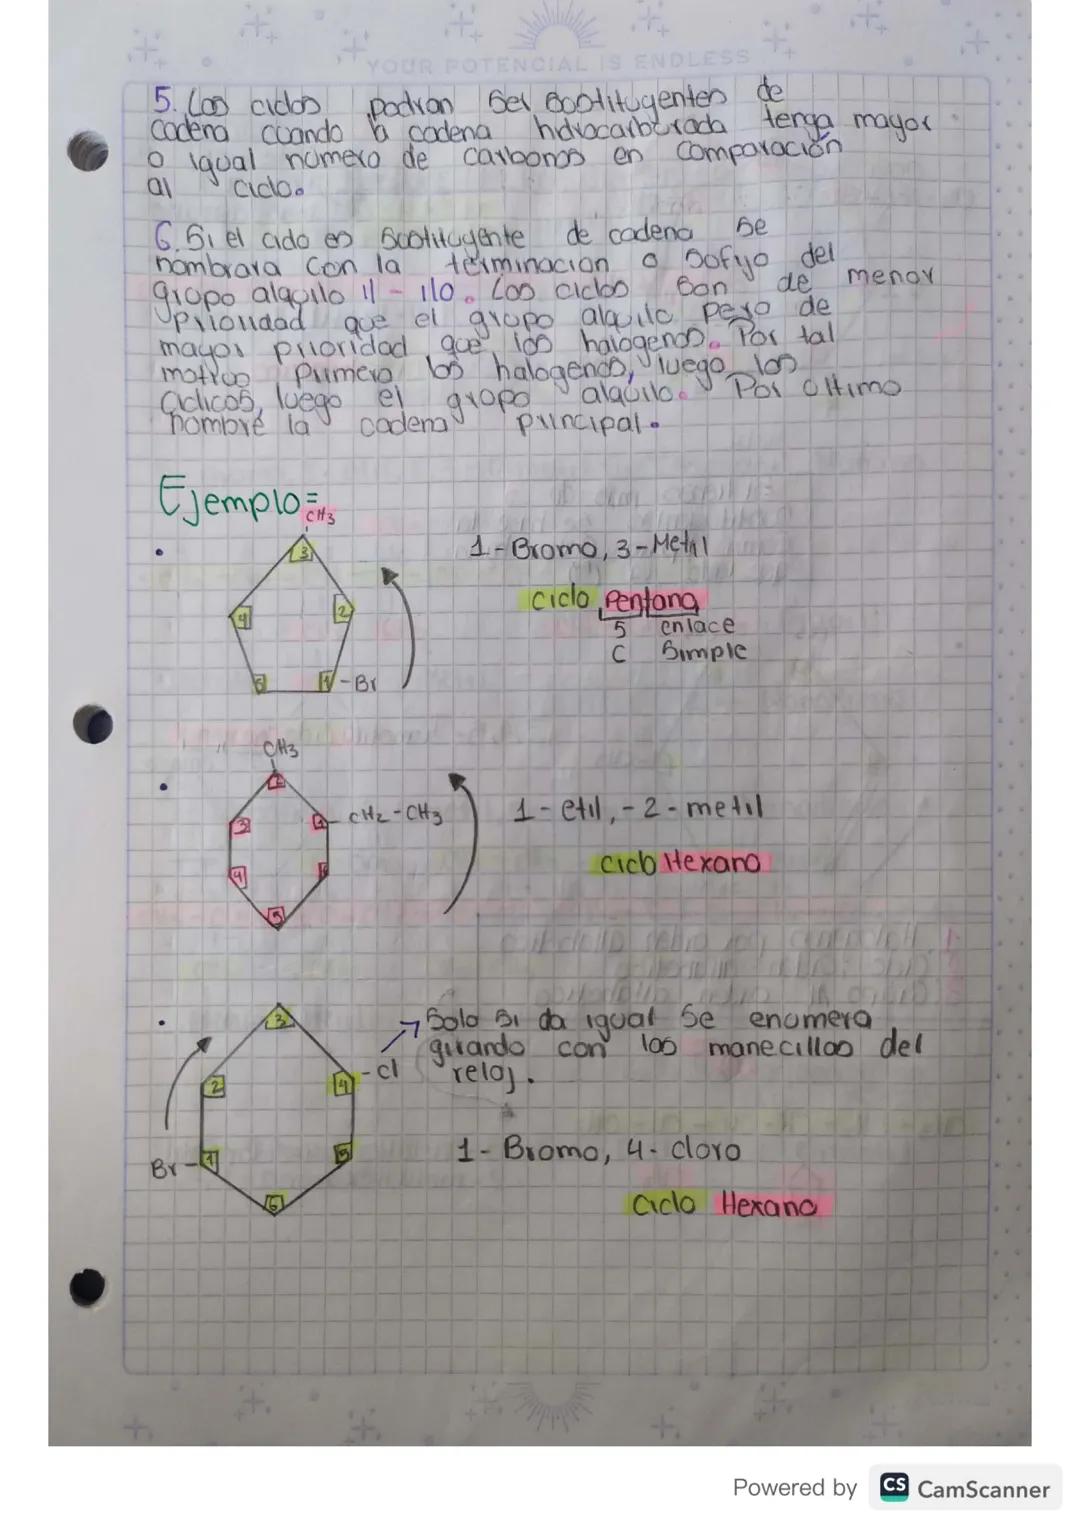 YOUR POTENCIAL IS ENDLESS
5. Los ciclos podran ser sostitugentes de
cadena cuando la cadena hidrocarburada tenga mayor
o igual numero de carbonos en comparación
al ciclo.
6. Si el ciclo es sostitugente de cadena se
nombrara con la terminacion o sofyo del
grupo alquilo il - ilo. Los ciclos son de menor
prioridad que el grupo alquilo pero de
mayor prioridad que los halogenos. Por tal
motivo primero los halogenos, luego los
ciclicos, luego el grupo alquilo. Por oltimo
nombre la cadena principal.
Ejemplo=
CH3
3
1-Bromo, 3-Metil
4
2
ciclo Pentano
5 enlace
C Simple
5
1 -Br
CH3
2
3
1 - CH2-CH3
1- etil, - 2 - metil
4
6
ciclo Hexano
5
3
Solo si da igual se enumera
girando con las manecillas del
reloj.
2
4 -cl
Br - 1
5
1- Bromo, 4- cloro
6
Ciclo Hexano
Powered by CS CamScanner